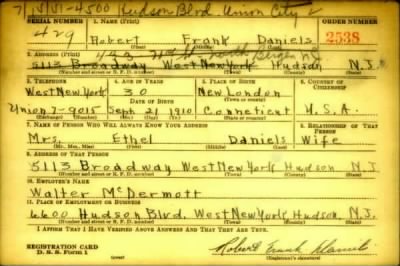 7/5/51-4500 Hudson Blvd Union City
SERIAL NUMBER 1. NAME (Print) ORDER NUMBER
429 Robert Frank Daniels 2538
(First) (Middle) (Last)
2. ADDRESS (Print)
5113 Broadway West New York Hudson N.J.
(Number and street or R. F. D. number) (Town) (County) (State)
3. TELEPHONE 4. AGE IN YEARS 5. PLACE OF BIRTH 6. COUNTRY OF CITIZENSHIP
West New York 30 New London
DATE OF BIRTH (Town or county)
Union 7-9015 Sept 21 1910 Conneticut U.S.A.
(Exchange) (Number) (Mo.) (Day) (Yr.) (State or country)
7. NAME OF PERSON WHO WILL ALWAYS KNOW YOUR ADDRESS 8. RELATIONSHIP OF THAT PERSON
Mrs. Ethel Daniels Wife
(Mr., Mrs., Miss) (First) (Middle) (Last)
9. ADDRESS OF THAT PERSON
5113 Broadway West New York Hudson N.J.
(Number and street or R. F. D. number) (Town) (County) (State)
10. EMPLOYER'S NAME
Walter McDermott
11. PLACE OF EMPLOYMENT OR BUSINESS
6600 Hudson Blvd. West New York, Hudson, N.J.
(Number and street or R. F. D. number) (Town) (County) (State)
I AFFIRM THAT I HAVE VERIFIED ABOVE ANSWERS AND THAT THEY ARE TRUE.
REGISTRATION CARD
D. S. S. Form 1 Robert Frank Daniels
(Registrant's signature)